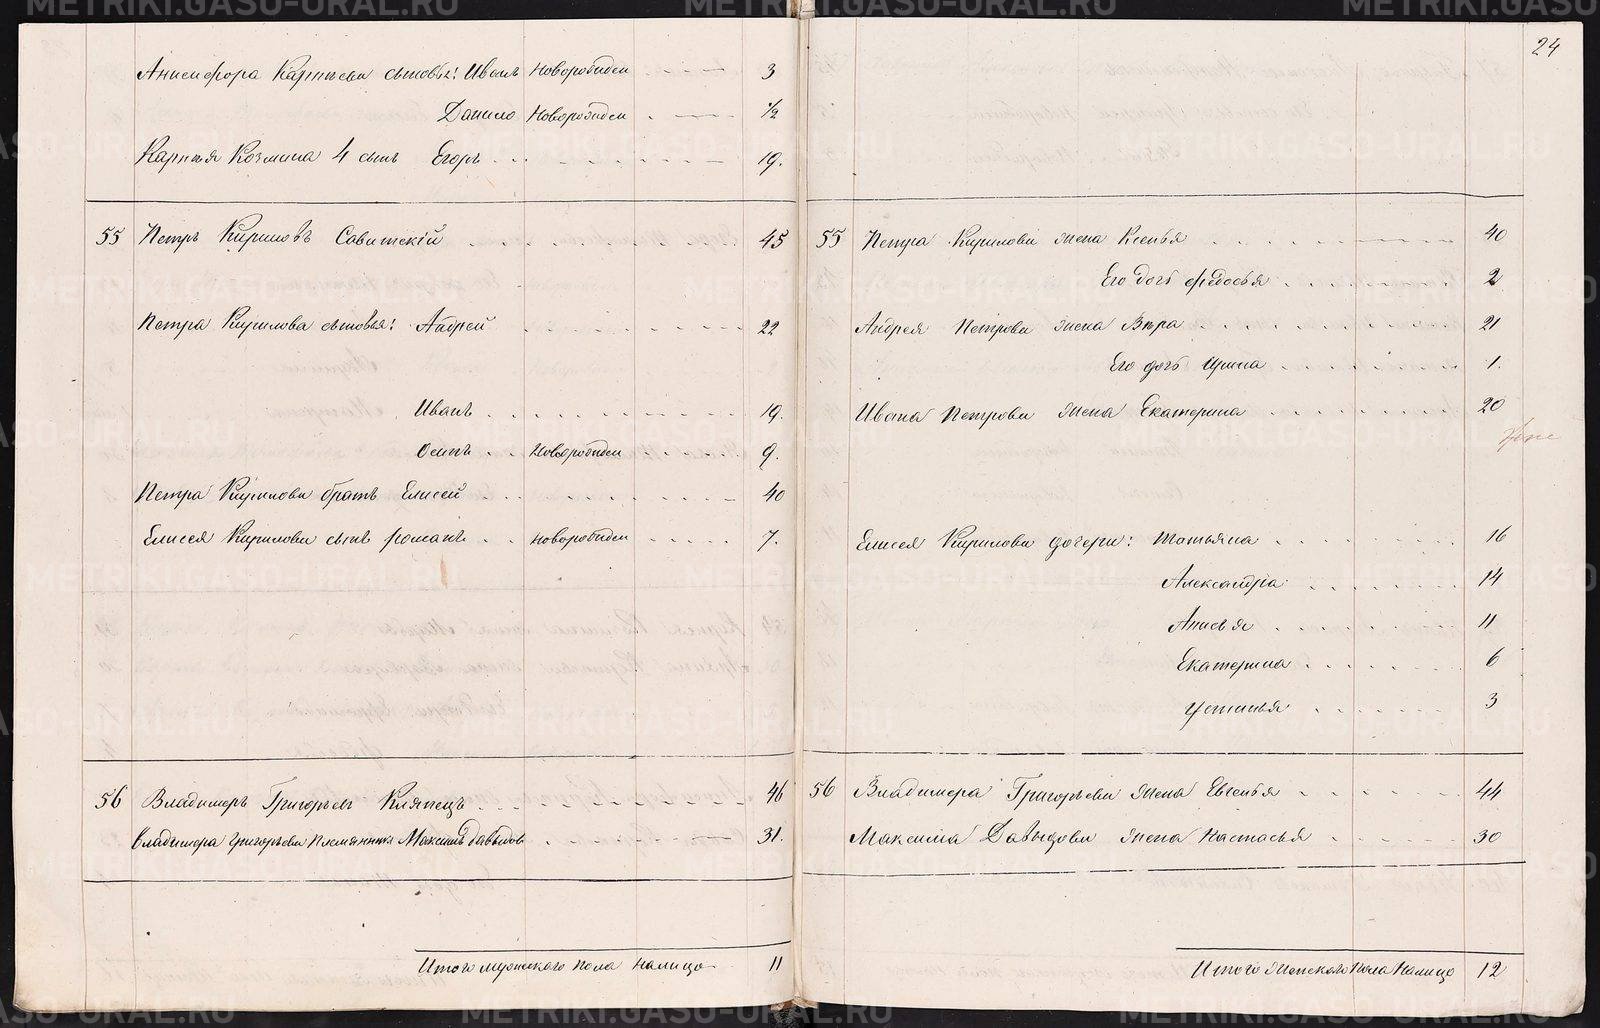 24
Анисифора Карпиева сыновья: Иванъ Новорожден 3
Данило Новорожден 1/2
Карпия Козмина 4 сынъ Егоръ 19.
55 Петръ Кириловъ Савитскій 45
Петра Кирилова сыновья: Андрей 22
Иванъ 19.
Осипъ Новорожден 9.
Петра Кирилова братъ Елисей 40
Елисея Кирилова сынъ Романъ Новорожден 7.
56 Владимеръ Григорьевъ Кляпецъ 46
Владимера Григорьева Племянник Максимъ Давыдов 31.
Итого мужескаго пола налицо 11
55 Петра Кирилова жена Ксенья 40
Его дочь Федосья 2
Андрея Петрова жена Вѣра 21
Его дочь Ирина 1.
Ивана Петрова жена Екатерина 20
Елисея Кирилова дочери: Татьяна 16
Александра 14
Анисья 11
Екатерина 6
Устинья 3
56 Владимера Григорьева жена Евгенья 44
Максима Давыдова жена Настасья 30
Итого женскаго пола налицо 12
METRIKI.GASO-URAL.RU